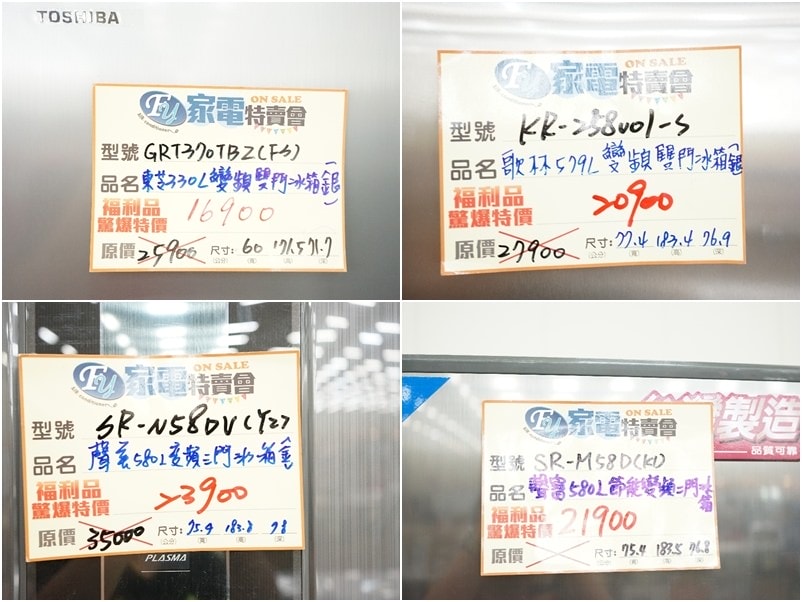 TOSHIBA
FU 家電特賣會 ON SALE
型號 GRT370TBZ(FS)
品名 東芝330L變頻雙門冰箱(銀)
福利品
驚爆特價 16900
原價 25900 尺寸: 60 171.5 71.7
(公分) (寬) (高) (深)
FU 家電特賣會 ON SALE
型號 KR-258V01-S
品名 歌林579L 變頻雙門冰箱(銀)
福利品
驚爆特價 20900
原價 27900 尺寸: 77.4 183.4 76.9
(公分) (寬) (高) (深)
FU 家電特賣會 ON SALE
型號 SR-N58DV(Y2)
品名 聲寶580L變頻三門冰箱
福利品
驚爆特價 23900
原價 35000 尺寸: 75.4 183.8 78
(公分) (寬) (高) (深)
PLASMA
製造
品質可靠
FU 家電特賣會 ON SALE
型號 SR-M58D(K1)
品名 聲寶580L節能變頻二門冰箱
福利品
驚爆特價 21900
原價 尺寸: 75.4 183.5 76.8
(公分) (寬) (高) (深)